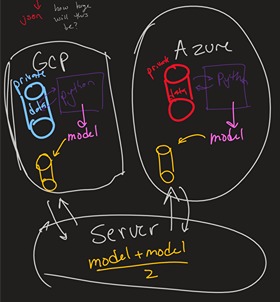 json
how huge
will this
be?
GCP
private
data
Python
model
Azure
private
data
Python
model
Server
model + model
2